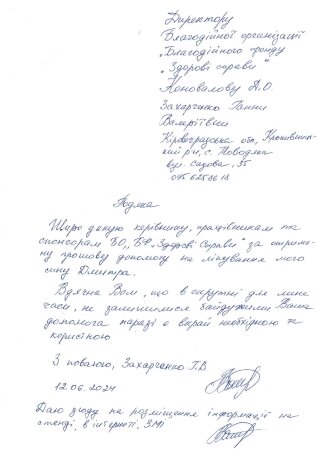 Директору
Благодійної організації
„Благодійного фонду
„Здорові справи"
Коновалову А.О.
Захарченко Ганни
Валеріївни
Кіровоградська обл, Кропивниць-
кий р-н, с.
вул. Садова, 35
Подяка
Щиро дякую керівнику, працівникам та
спонсорам БО „БФ „Здорові Справи" за отрима-
ну грошову допомогу на лікування мого
сину Дмитра.
Вдячна Вам, що в скрутні для мене
часи, не залишилися байдужими Ваша
допомога наразі є вкрай необхідною та
корисною
З повагою, Захарченко Г.В
12.06.2024
Даю згоду на розміщення інформації на
стенді, в інтернеті, ЗМІ